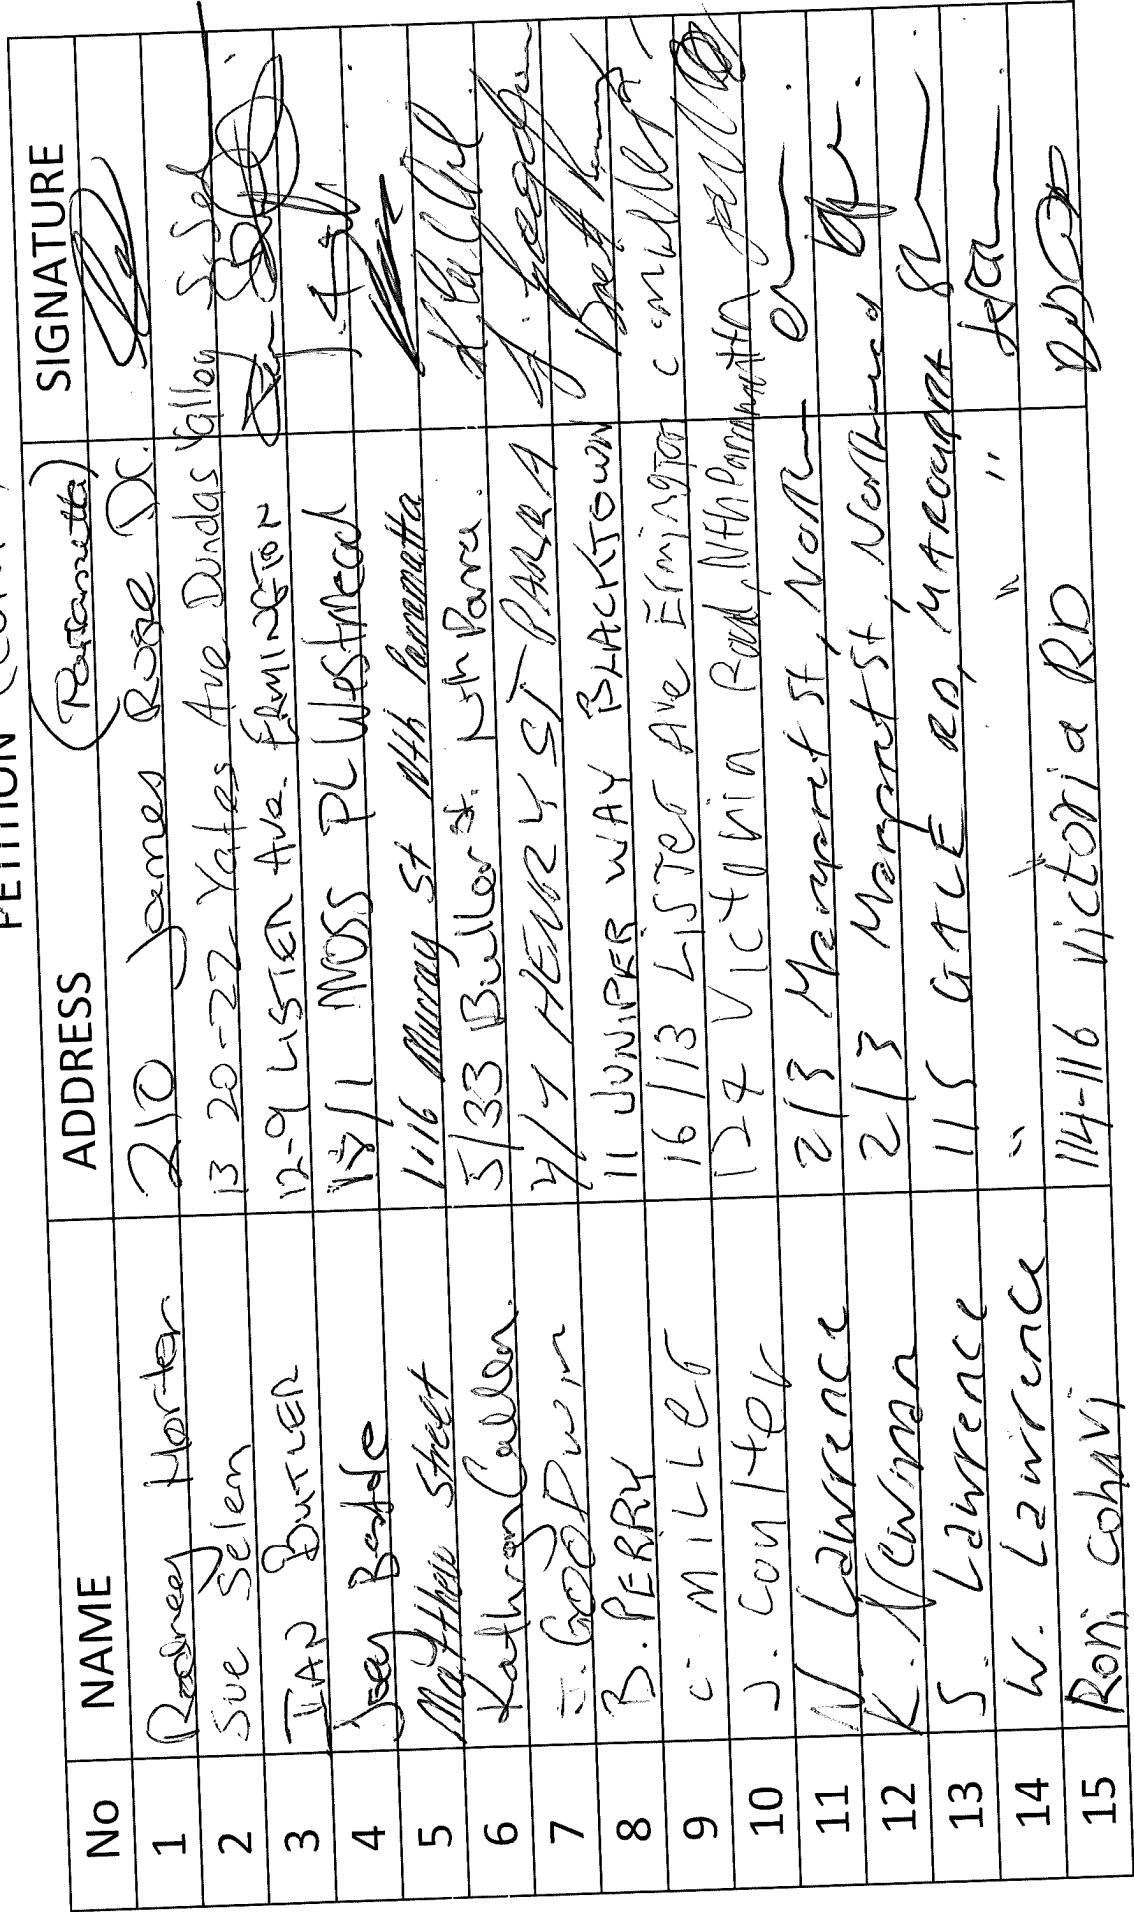 PETITION
No NAME ADDRESS SIGNATURE
(Parramatta)
1 Rodney Horter 210 James Ruse Dr.
2 Sue Selem 13 20-22 Yates Ave Dundas Valley
3 IAN BUTLER 12-9 LISTER Ave. ERMINGTON
4 Joey Bastde 18/1 MOSS PL Westmead
5 Matthew Street 1/16 Murray St Nth Parramatta
6 Kathryn Callen 5/33 Buller St. Nth Parra.
7 J. GODWIN 4/7 HENRY ST PARRA
8 B. PERRY 11 JUNIPER WAY BLACKTOWN
9 C. MILLER 16/13 LISTER Ave Ermington C. Miller
10 J. Coulter 124 Victoria Road, Nth Parramatta
11 N Lawrence 2/3 Margaret St, North
12 K. Newman 2/3 Margaret St,
13 S. Lawrence 115 GALE RD, MAROUBRA
14 W. Lawrence " " " "
15 Roni cohavi 114-116 Victoria RD